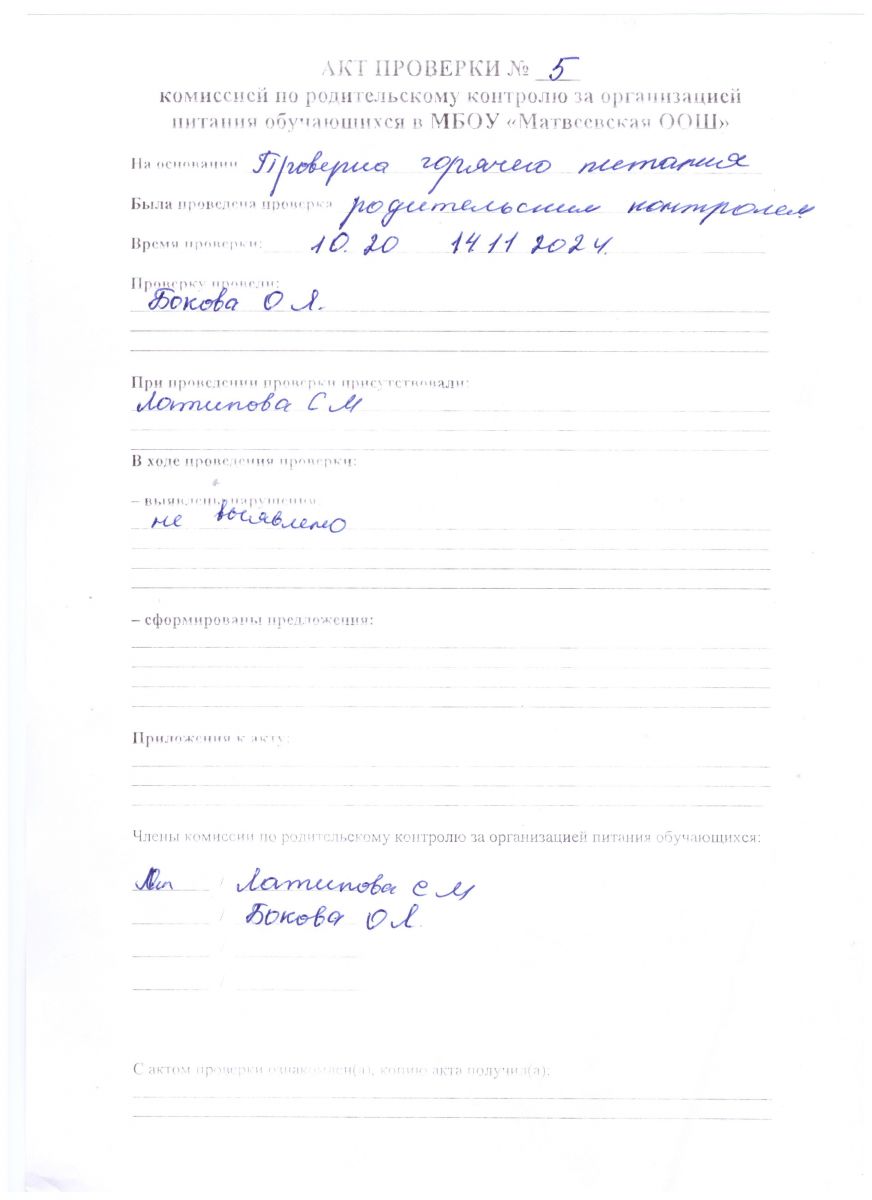 АКТ ПРОВЕРКИ № 5
комиссией по родительскому контролю за организацией
питания обучающихся в МБОУ «Матвеевская ООШ»
На основании Проверка горячего питания
Была проведена проверка родительским контролем
Время проверки: 10.20 14 11 2024.
Проверку провели:
Бокова О Л.
При проведении проверки присутствовали:
Латипова С М
В ходе проведения проверки:
– выявлены нарушения
не выявлено
– сформированы предложения:
Приложения к акту:
Члены комиссии по родительскому контролю за организацией питания обучающихся:
/ Латипова С М
/ Бокова О Л.
/
/
С актом проверки ознакомлен(а), копию акта получил(а):